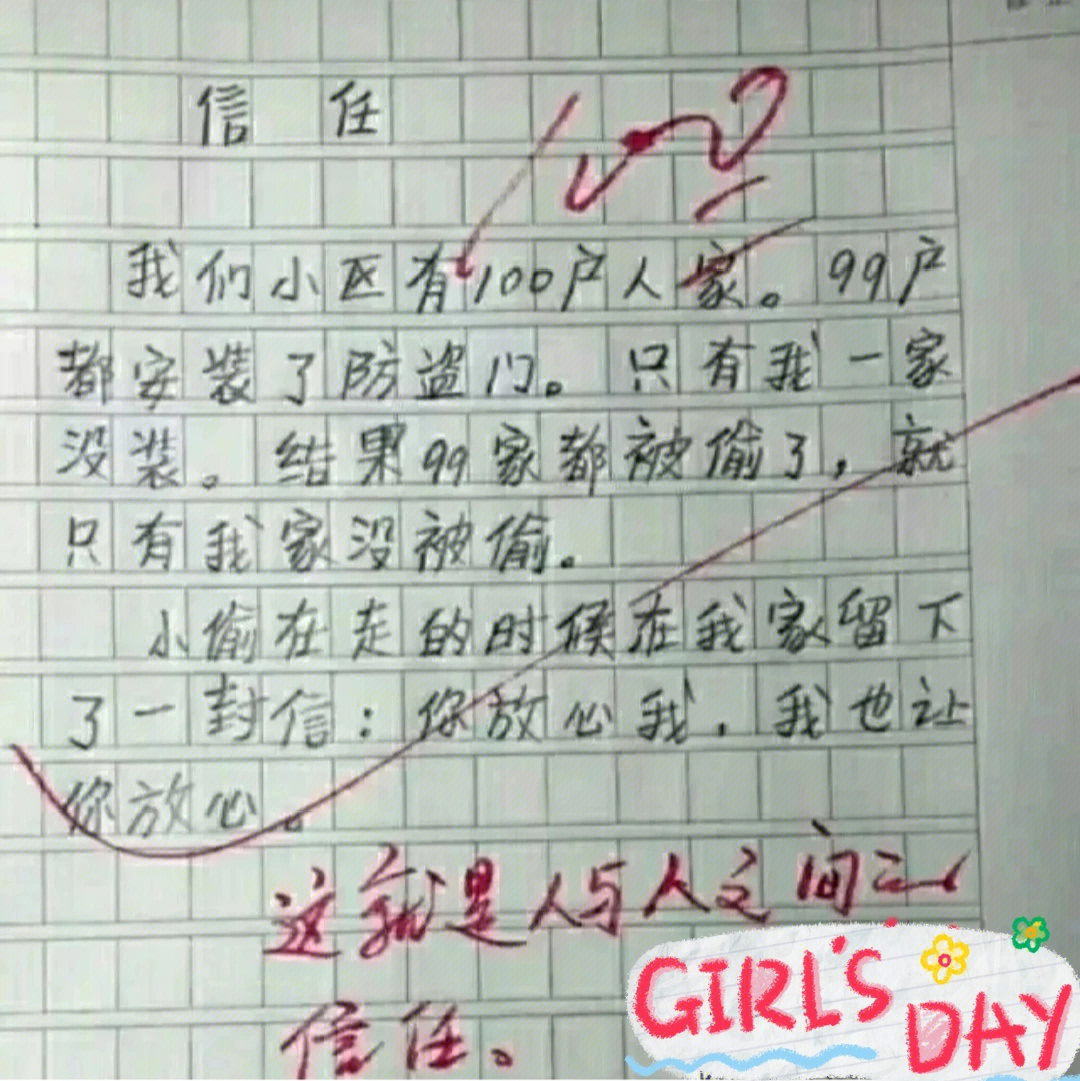 信任
100
我们小区有100户人家。99户
都安装了防盗门。只有我一家
没装。结果99家都被偷了，就
只有我家没被偷。
小偷在走的时候在我家留下
了一封信：你放心我．我也让
你放心。
这就是人与人之间
信任。
GIRL'S
DAY